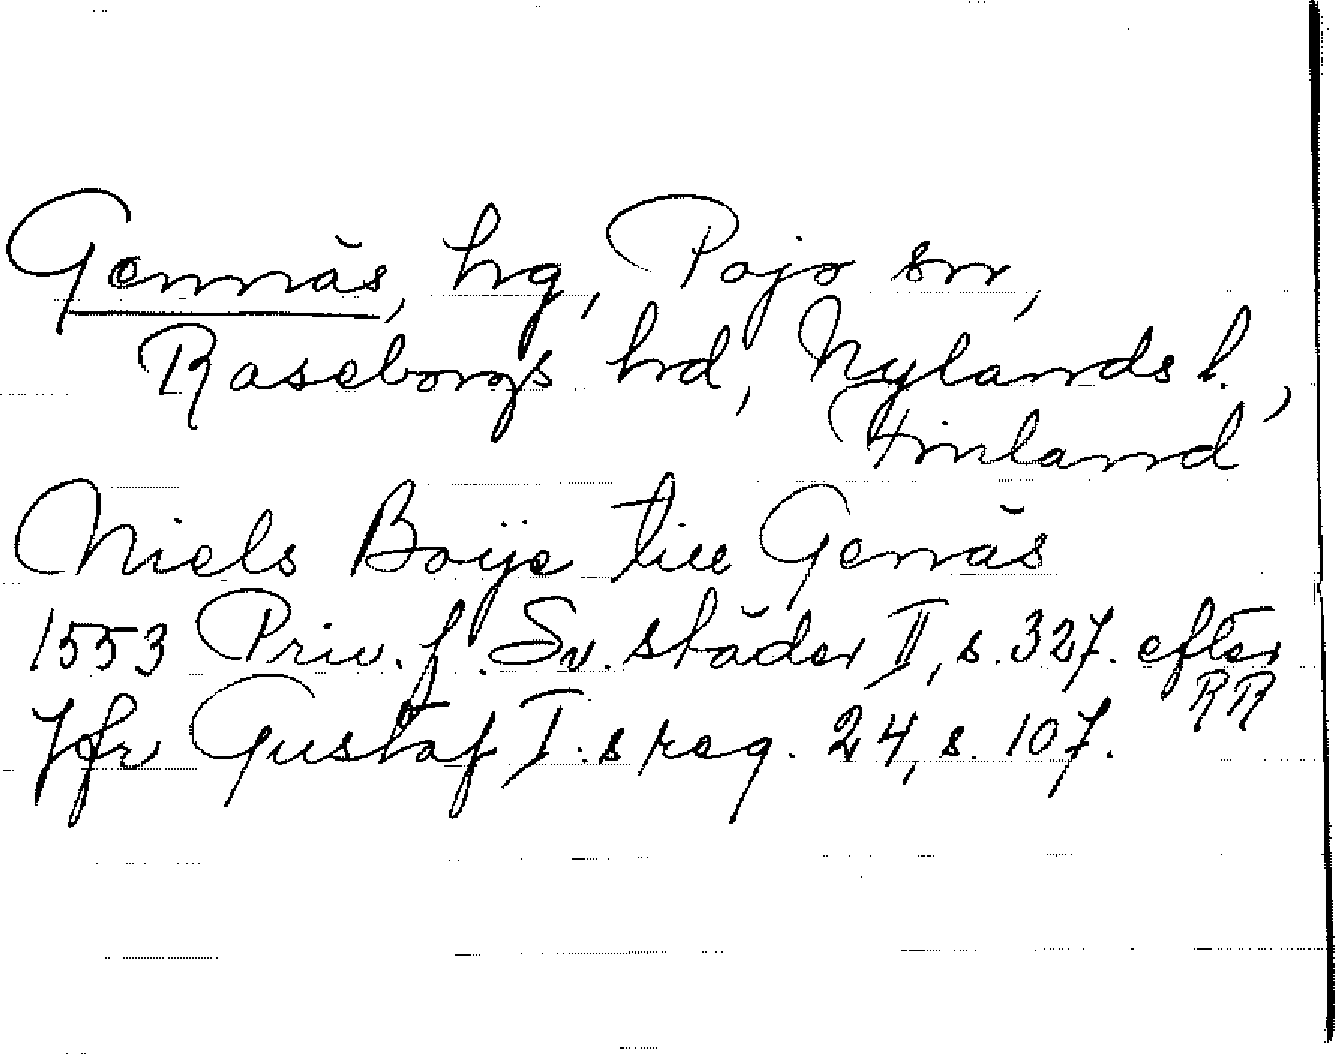 Gennäs, hg, Pojo sn,
Raseborgs hrd, Nylands l.,
Finland
Niels Boije till Genäs
1553 Priv. f. Sv. städer II, s. 327. efter
RR
Jfr Gustaf I:s reg. 24, s. 107.